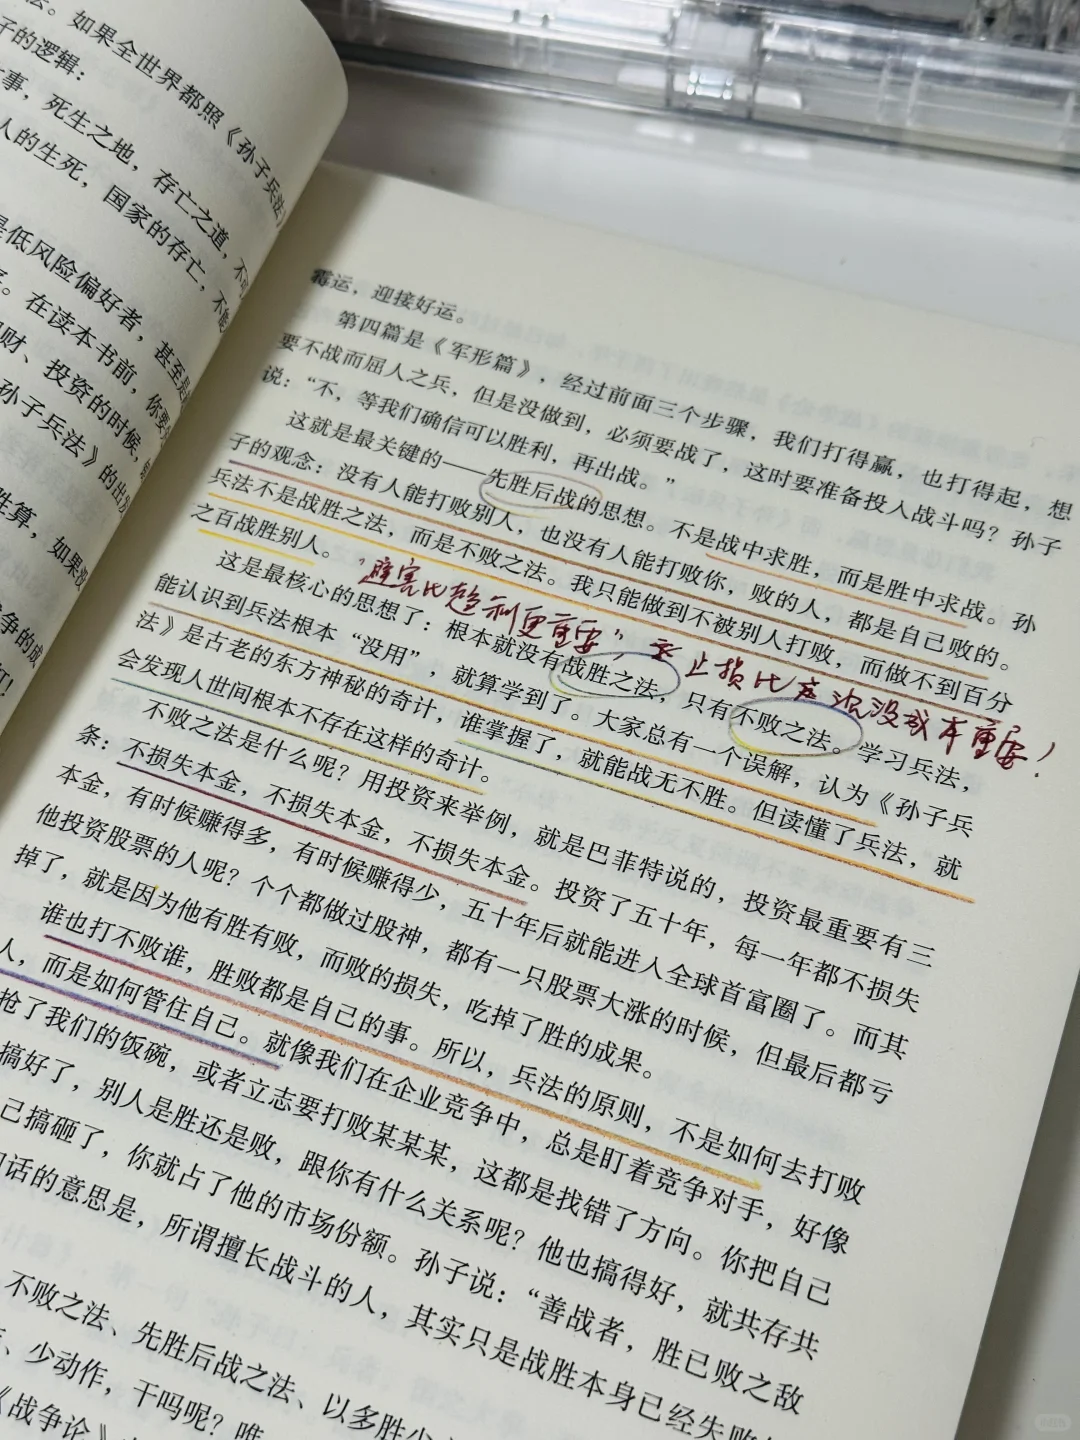 法。如果全世界都照《孙子兵法》
子的逻辑：
事，死生之地，存亡之道，不
人的生死，国家的存亡，不能
是低风险偏好者，甚至是
。在读本书前，你要
财、投资的时候，
孙子兵法》的出
胜算，如果没
争的成
打！
霉运，迎接好运。
第四篇是《军形篇》，经过前面三个步骤，我们打得赢，也打得起，想
要不战而屈人之兵，但是没做到，必须要战了，这时要准备投入战斗吗？孙子
说：“不，等我们确信可以胜利，再出战。”
这就是最关键的——先胜后战的思想。不是战中求胜，而是胜中求战。孙
子的观念：没有人能打败别人，也没有人能打败你，败的人，都是自己败的。
兵法不是战胜之法，而是不败之法。我只能做到不被别人打败，而做不到百分
之百战胜别人。
“避害比趋利更重要”，止损比在沉没成本重要！
这是最核心的思想了：根本就没有战胜之法，只有不败之法。学习兵法，
能认识到兵法根本“没用”，就算学到了。大家总有一个误解，认为《孙子兵
法》是古老的东方神秘的奇计，谁掌握了，就能战无不胜。但读懂了兵法，就
会发现人世间根本不存在这样的奇计。
不败之法是什么呢？用投资来举例，就是巴菲特说的，投资最重要有三
条：不损失本金，不损失本金，不损失本金。投资了五十年，每一年都不损失
本金，有时候赚得多，有时候赚得少，五十年后就能进入全球首富圈了。而其
他投资股票的人呢？个个都做过股神，都有一只股票大涨的时候，但最后都亏
掉了，就是因为他有胜有败，而败的损失，吃掉了胜的成果。
谁也打不败谁，胜败都是自己的事。所以，兵法的原则，不是如何去打败
人，而是如何管住自己。就像我们在企业竞争中，总是盯着竞争对手，好像
抢了我们的饭碗，或者立志要打败某某某，这都是找错了方向。你把自己
搞好了，别人是胜还是败，跟你有什么关系呢？他也搞得好，就共存共
己搞砸了，你就占了他的市场份额。孙子说：“善战者，胜已败之敌
句话的意思是，所谓擅长战斗的人，其实只是战胜本身已经失败
不败之法、先胜后战之法、以多胜少
、少动作，干吗呢？唯
《战争论》